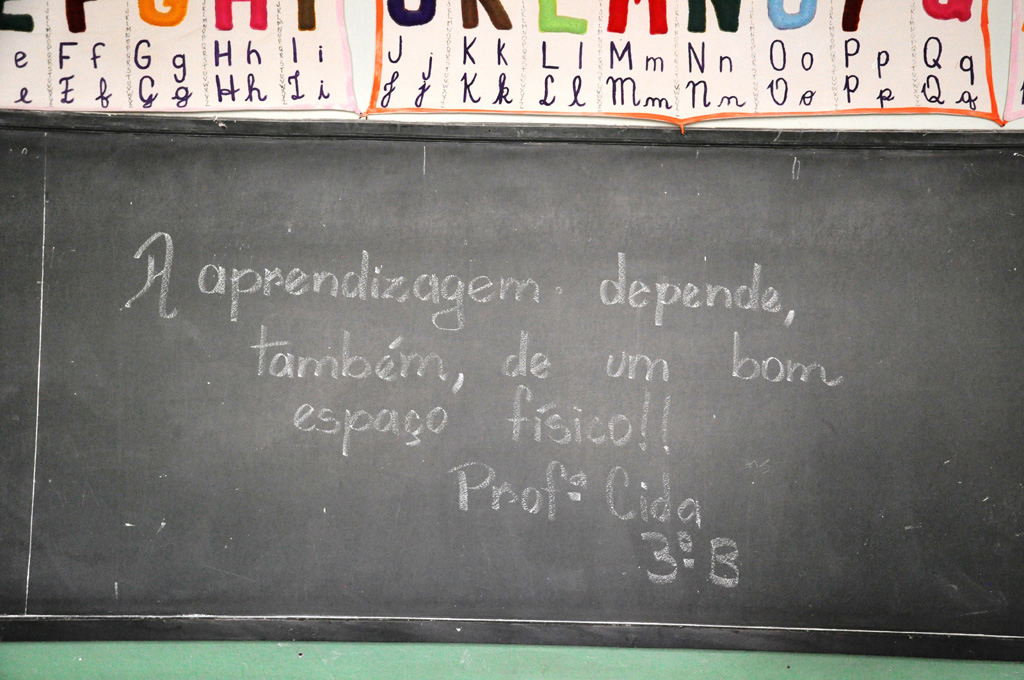 E F G H I J K L M N O P Q
e F f G g H h I i J j K k L l M m N n O o P p Q q
e F f G g H h I i J j K k L l M m N n O o P p Q q
A aprendizagem depende,
também, de um bom
espaço físico!!
Profª Cida
3º B